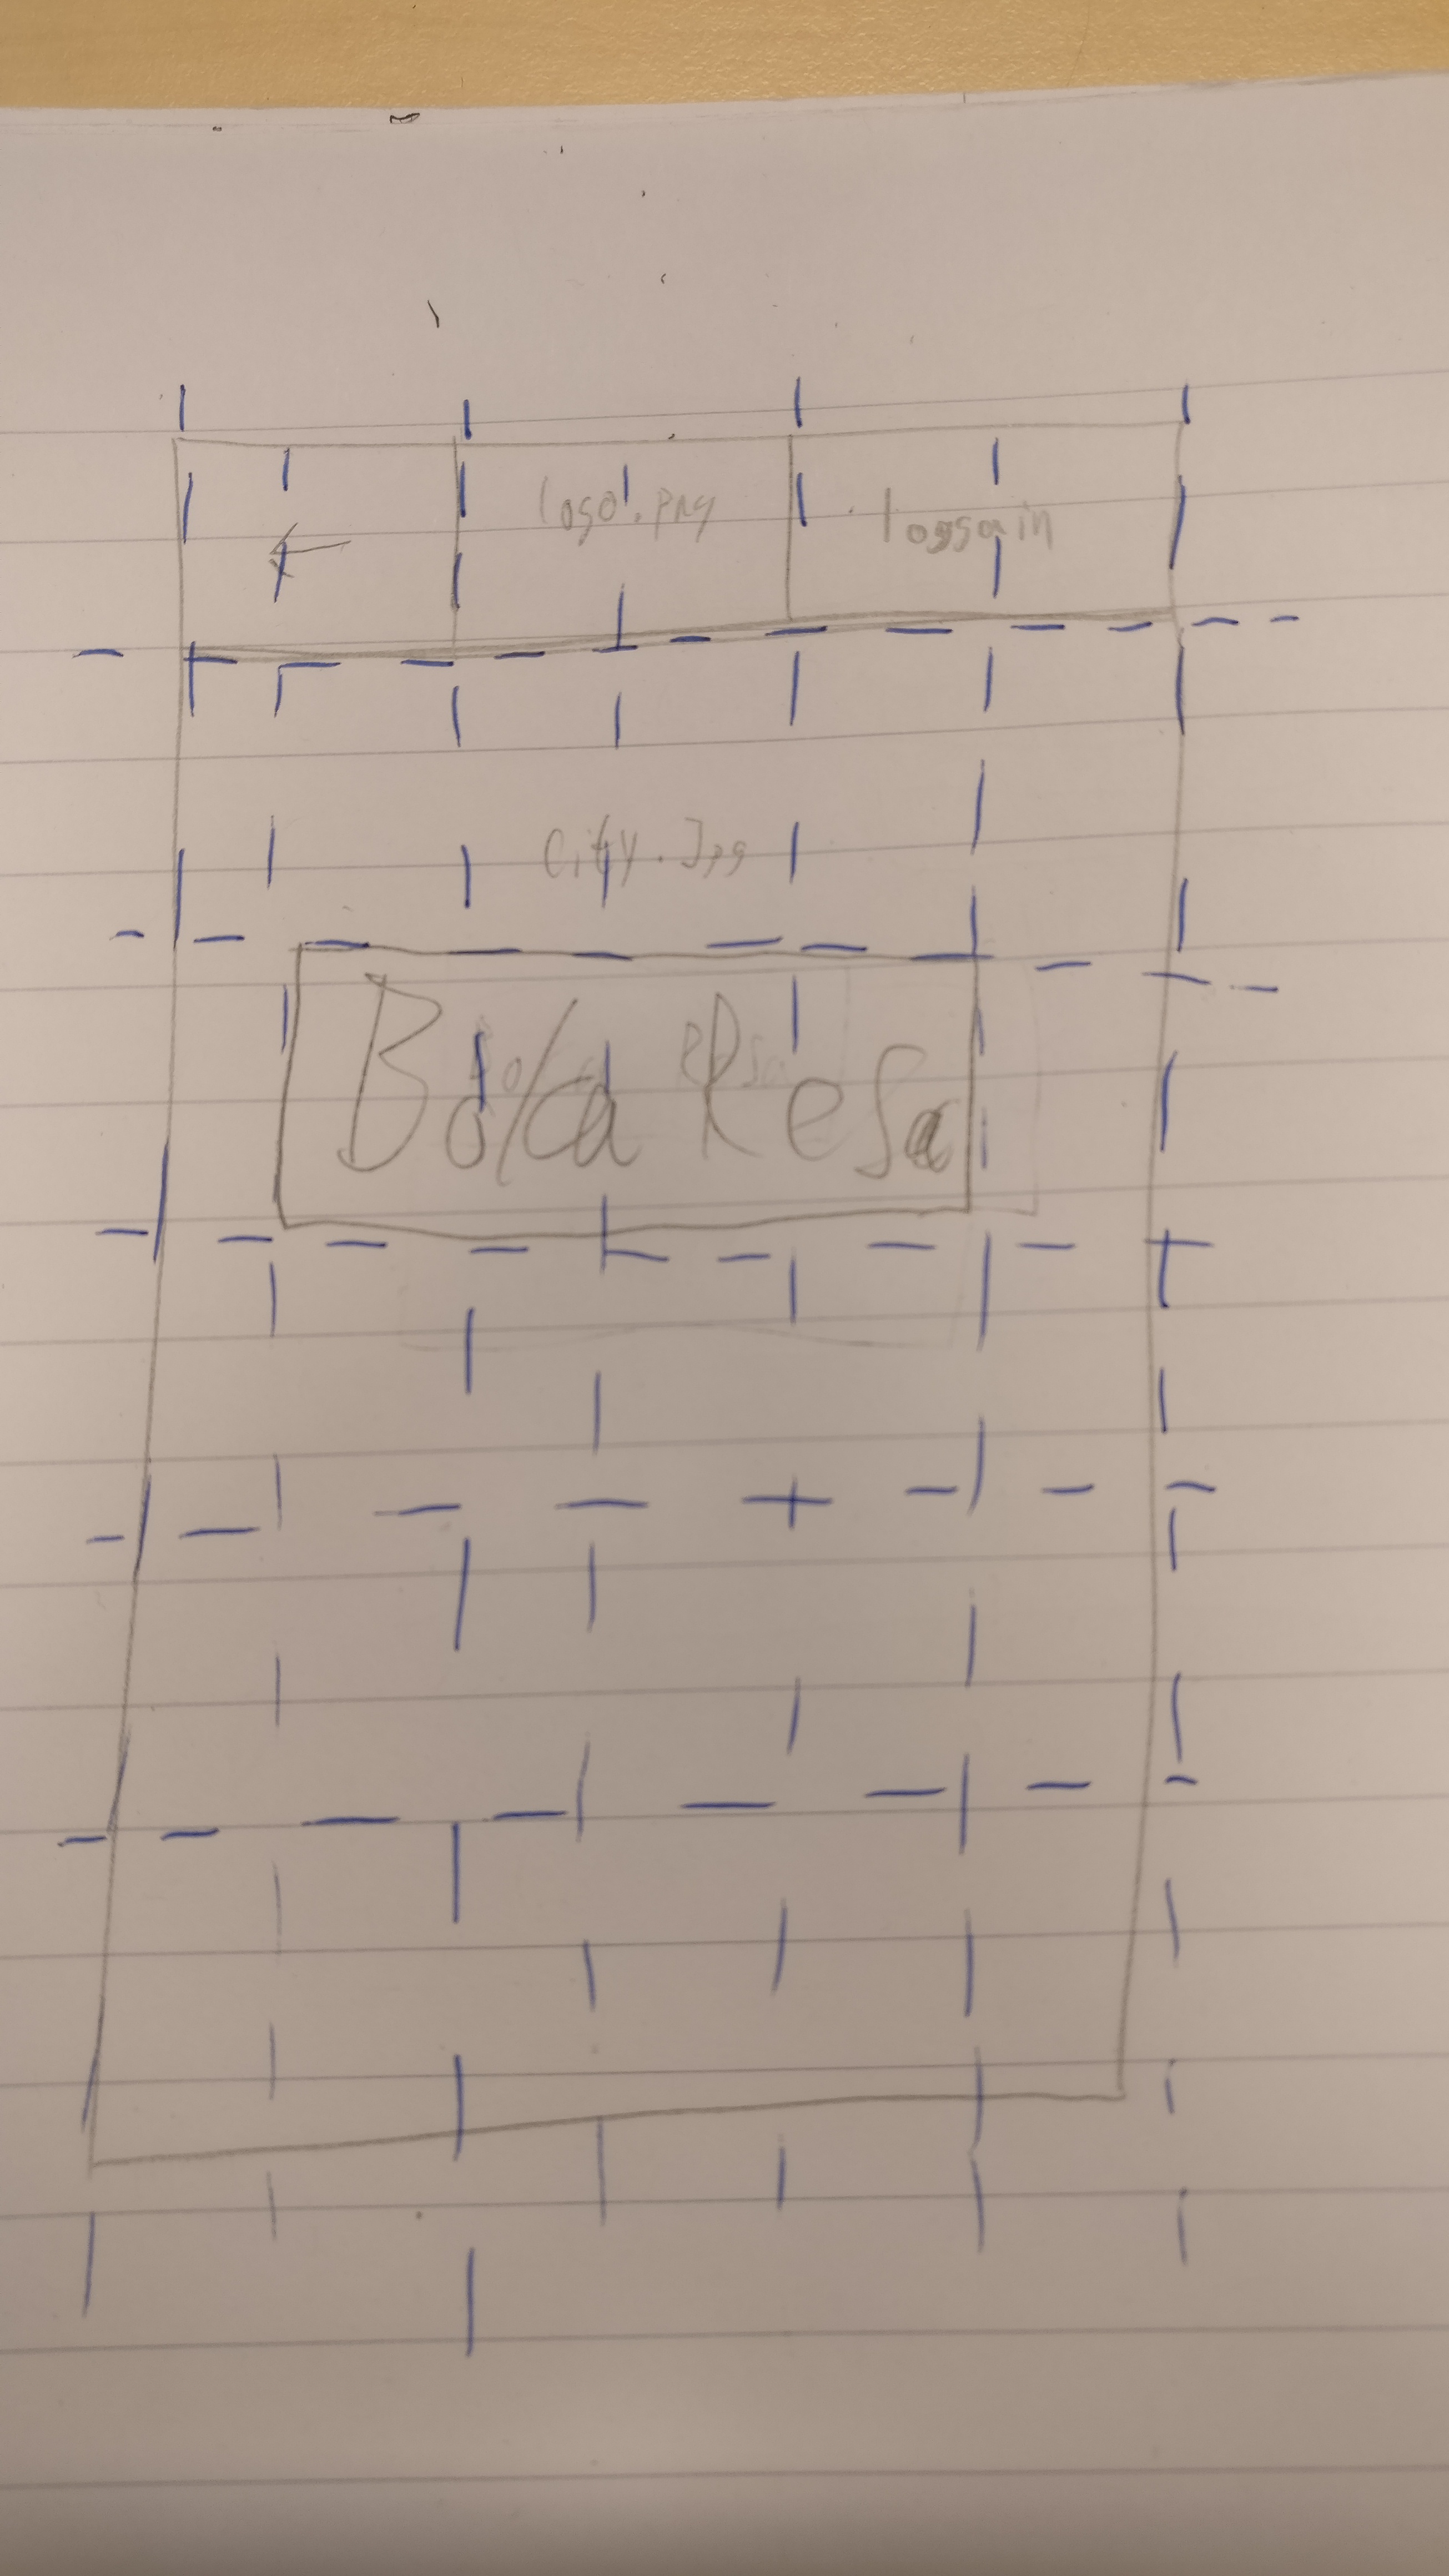 ← logo.png Loggain
City.Jpg
Boka Resa